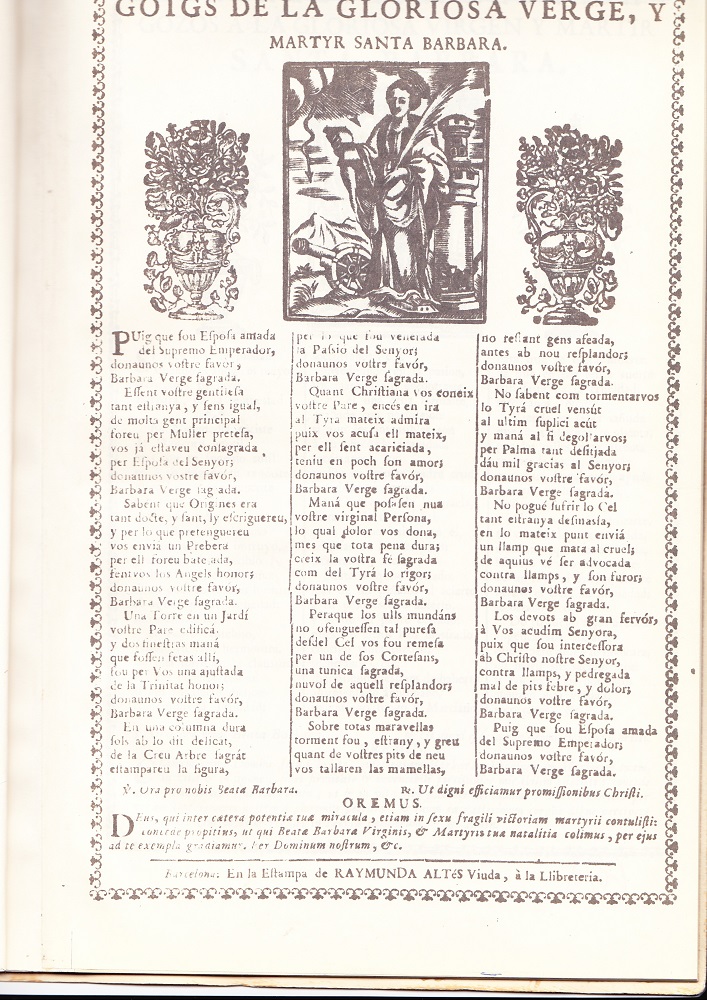 GOIGS DE LA GLORIOSA VERGE, Y
MARTYR SANTA BARBARA.
PUig que ſou Eſpoſa amada
del Supremo Emperador,
donaunos voſtre favór,
Barbara Verge ſagrada.
Eſſent voſtre gentileſa
tant eſtranya, y ſens igual,
de molta gent principal
foreu per Muller preteſa,
vos já eſtaveu conſagrada
per Eſpoſa del Senyor;
donaunos voſtre favór,
Barbara Verge ſagrada.
Sabent que Origines era
tant docte, y ſant, ly eſcriguereu,
y per lo que pretenguereu
vos enviá un Prebera
per ell foreu batejada,
fentvos los Angels honor;
donaunos voſtre favór,
Barbara Verge ſagrada.
Una Torre en un Jardí
voſtre Pare edificá,
y dos fineſtras maná
que foſſen fetas alli,
fou per Vos una ajuſtada
de la Trinitat honor;
donaunos voſtre favór,
Barbara Verge ſagrada.
En una columna dura
ſols ab lo dit delicat,
de la Creu Arbre ſagrát
eſtampareu la figura,
per lo que fou venerada
la Paſſio del Senyor;
donaunos voſtre favór,
Barbara Verge ſagrada.
Quant Chriſtiana vos coneix
voſtre Pare, encés en ira
al Tyrá mateix admira
puix vos acuſa ell mateix,
per ell ſent acariciada,
teniu en poch ſon amor;
donaunos voſtre favór,
Barbara Verge ſagrada.
Maná que poſaſſen nua
voſtre virginal Perſona,
lo qual dolor vos dona,
mes que tota pena dura;
creix la voſtra fé ſagrada
com del Tyrá lo rigor;
donaunos voſtre favór,
Barbara Verge ſagrada.
Peraque los ulls mundáns
no ofengueſſen tal pureſa
deſdel Cel vos fou remeſa
per un de ſos Corteſans,
una tunica ſagrada,
nuvol de aquell reſplandor;
donaunos voſtre favór,
Barbara Verge ſagrada.
Sobre totas maravellas
torment fou, eſtrany, y greu
quant de voſtres pits de neu
vos tallaren las mamellas,
no reſtant gens afeada,
antes ab nou reſplandor;
donaunos voſtre favór,
Barbara Verge ſagrada.
No ſabent com tormentarvos
lo Tyrá cruel vensút
al ultim ſuplici acút
y maná al fi degollarvos;
per Palma tant deſitjada
dáu mil gracias al Senyor;
donaunos voſtre favór,
Barbara Verge ſagrada.
No pogué ſufrir lo Cel
tant eſtranya deſmaſía,
en lo mateix punt enviá
un llamp que mata al cruel;
de aquius vé ſer advocada
contra llamps, y ſon furor;
donaunos voſtre favór,
Barbara Verge ſagrada.
Los devots ab gran fervór,
à Vos acudim Senyora,
puix que ſou interceſſora
ab Chriſto noſtre Senyor,
contra llamps, y pedregada
mal de pits febre, y dolor;
donaunos voſtre favór,
Barbara Verge ſagrada.
Puig que ſou Eſpoſa amada
del Supremo Emperador;
donaunos voſtre favór,
Barbara Verge ſagrada.
℣. Ora pro nobis Beata Barbara.
℟. Ut digni efficiamur promiſſionibus Chriſti.
OREMUS.
DEus, qui inter cætera potentiæ tuæ miracula, etiam in ſexu fragili victoriam martyrii contuliſti:
concede propitius, ut qui Beatæ Barbaræ Virginis, & Martyris tuæ natalitia colimus, per ejus
ad te exempla gradiamur. Per Dominum noſtrum, &c.
Barcelona: En la Eſtampa de RAYMUNDA ALTéS Viuda, à la Llibreteria.